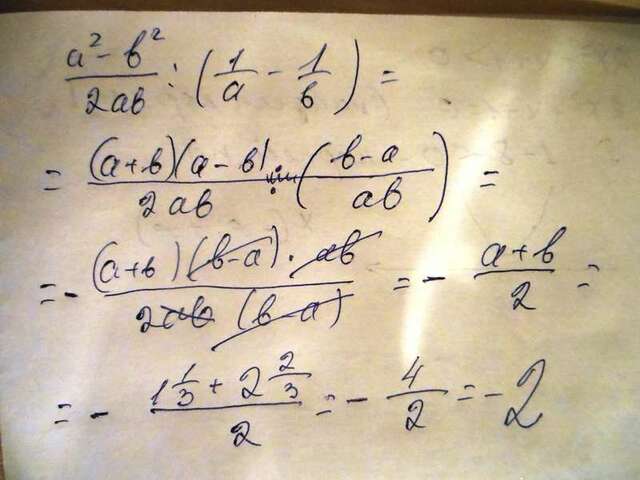 a² - b² / 2ab : (1/a - 1/b) =
= (a+b)(a-b) / 2ab : (b-a / ab) =
= - (a+b)(b-a) · ab / 2ab (b-a) = - a+b / 2 =
= - 1 1/3 + 2 2/3 / 2 = - 4/2 = -2